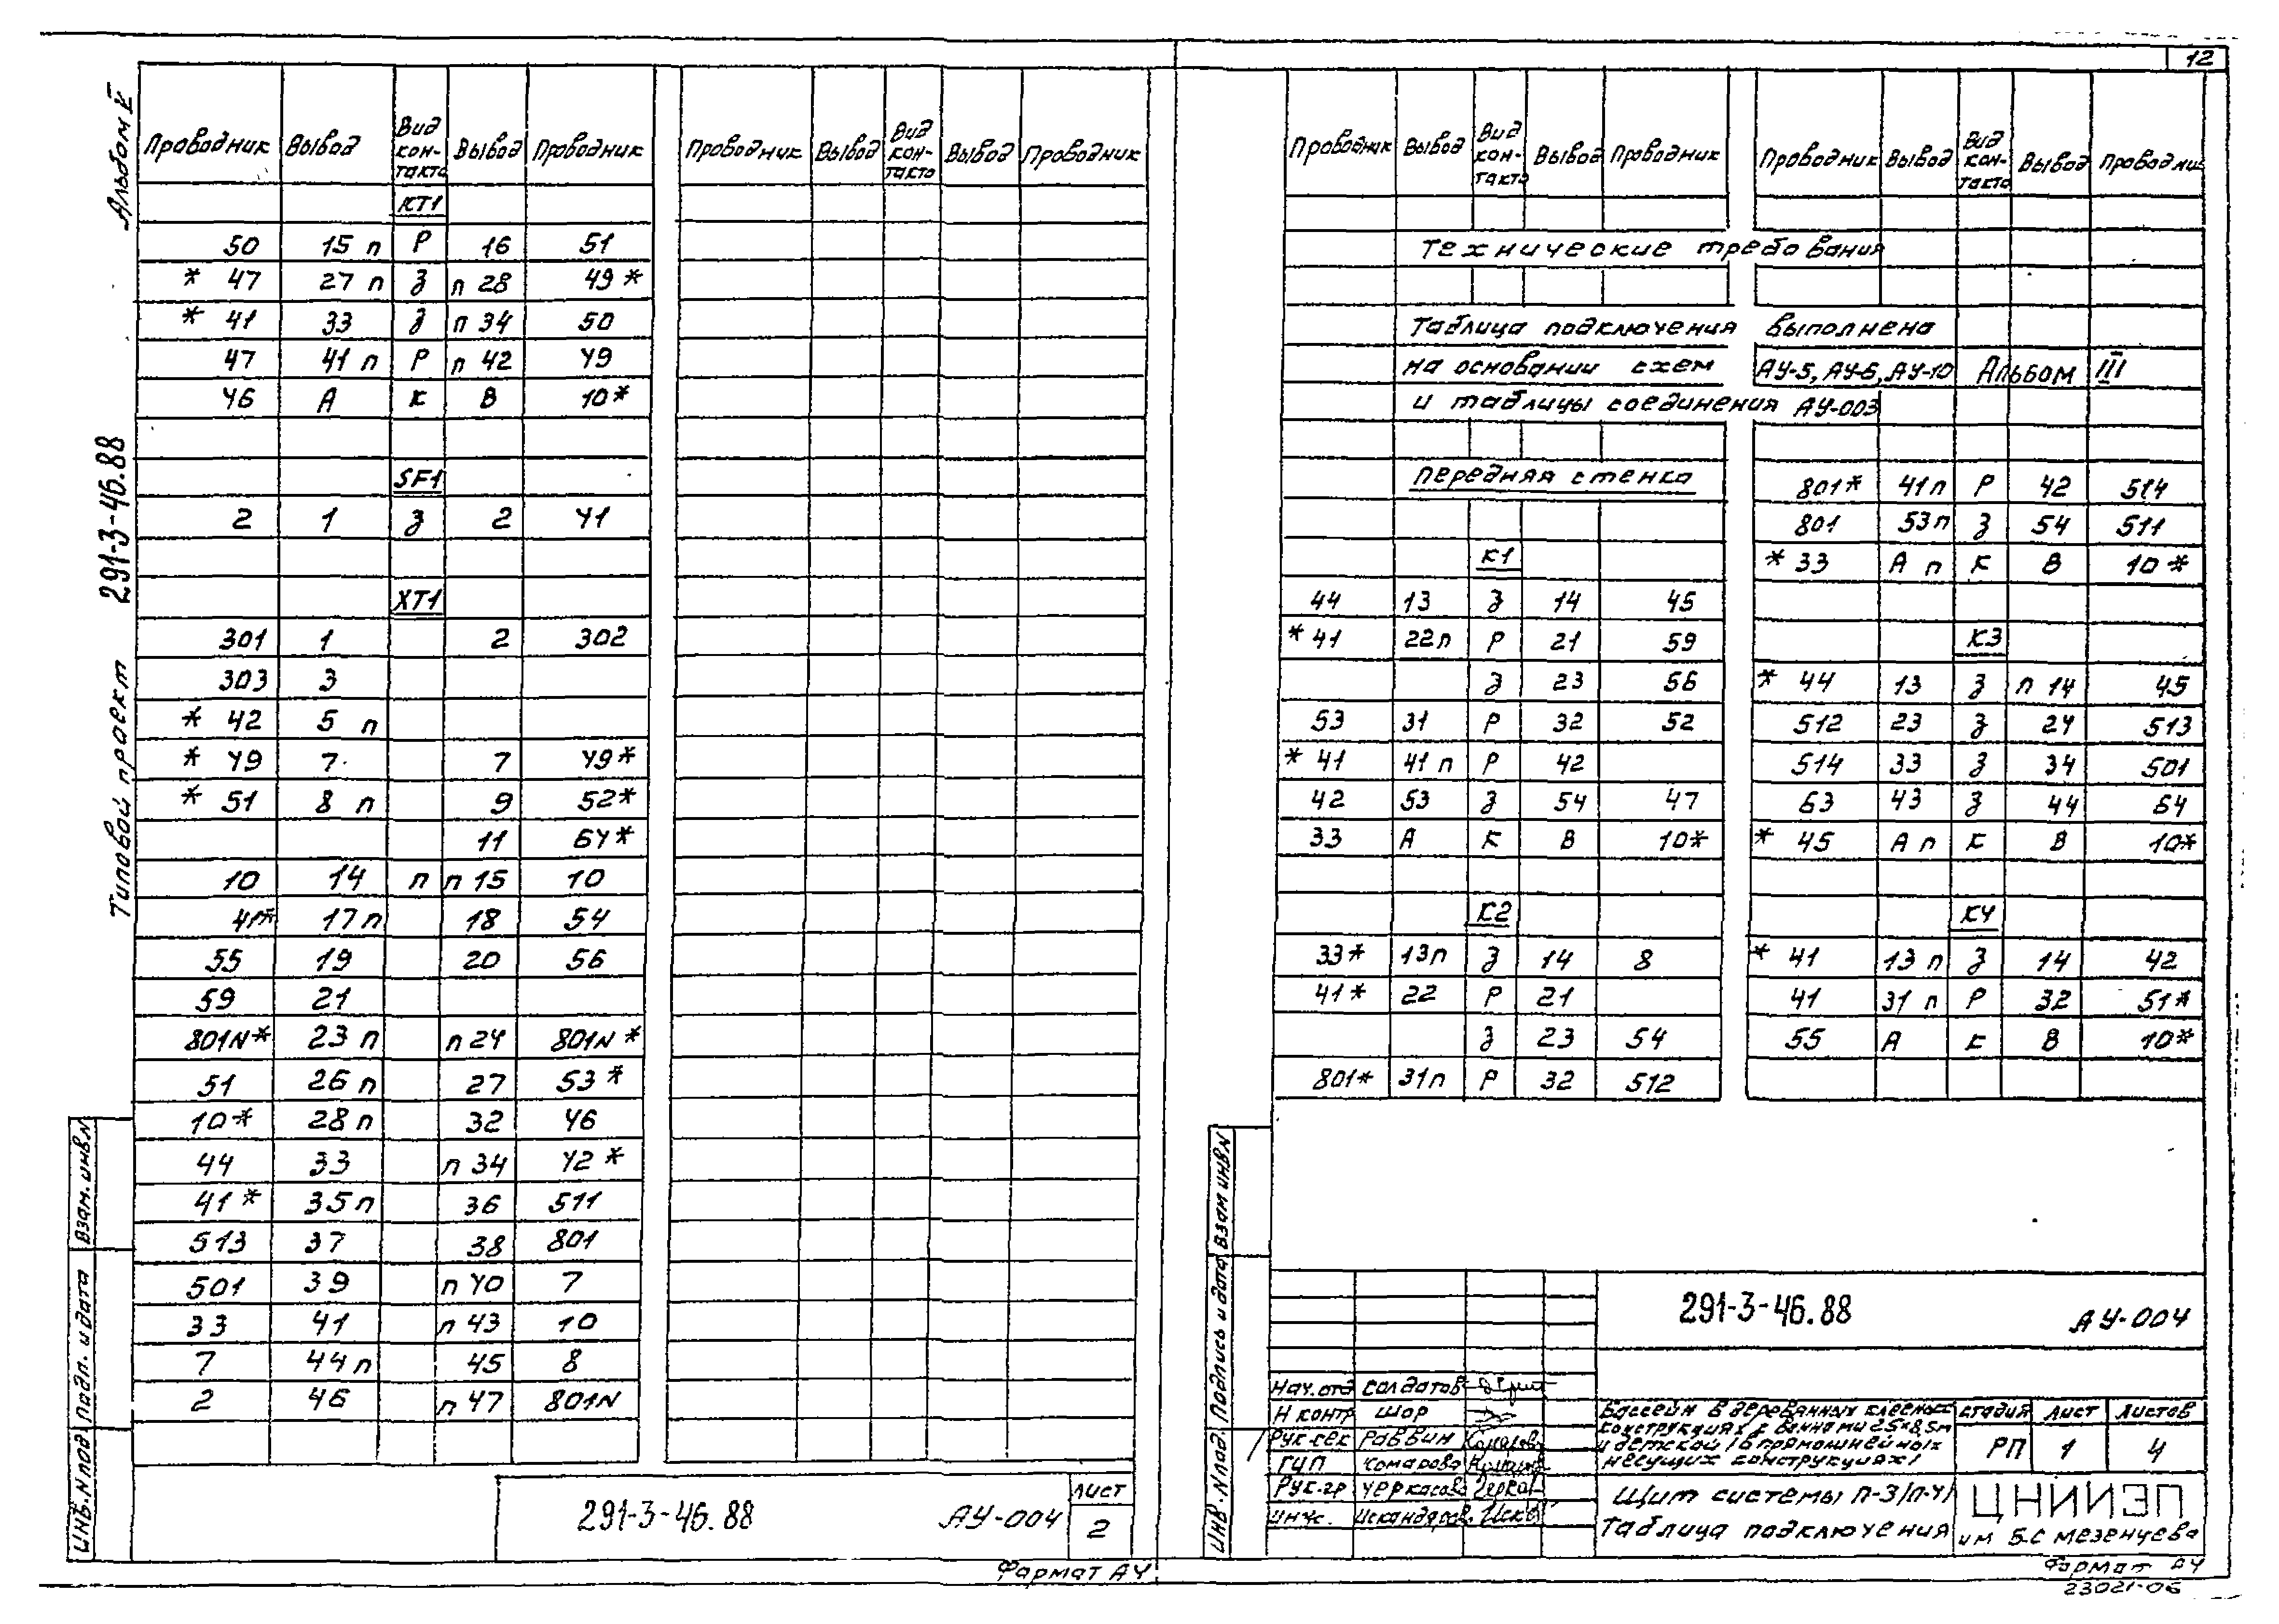 12
Альбом
Типовой проект 291-3-46.88
Проводник Вывод Вид кон-такта Вывод Проводник
КТ1
50 15 п Р 16 51
* 47 27 п З п 28 49 *
* 41 33 З п 34 50
47 41 п Р п 42 49
46 А К В 10 *
SF1
2 1 З 2 41
ХТ1
301 1 2 302
303 3
* 42 5 п
* 49 7 7 49 *
* 51 8 п 9 52 *
11 64 *
10 14 п п 15 10
41 * 17 п 18 54
55 19 20 56
59 21
801N * 23 п п 24 801N *
51 26 п 27 53 *
10 * 28 п 32 46
44 33 п 34 42 *
41 * 35 п 36 511
513 37 38 801
501 39 п 40 7
33 41 п 43 10
7 44 п 45 8
2 46 п 47 801N
Проводник Вывод Вид кон-такта Вывод Проводник
291-3-46.88 АУ-004 Лист 2
Формат А4
Инв. N подл Подп. и дата Взам. инв.N
Проводник Вывод Вид кон-такта Вывод Проводник
Проводник Вывод Вид кон-такта Вывод Проводник
Технические требования
Таблица подключения выполнена
на основании схем АУ-5, АУ-6, АУ-10 Альбом III
и таблицы соединения АУ-003
Передняя стенка
К1
44 13 З 14 45
* 41 22 п Р 21 59
З 23 56
53 31 Р 32 52
* 41 41 п Р 42
42 53 З 54 47
33 А К В 10 *
К2
33 * 13 п З 14 8
41 * 22 Р 21
З 23 54
801 * 31 п Р 32 512
801 * 41 п Р 42 514
801 53 п З 54 511
* 33 А п К В 10 *
К3
* 44 13 З п 14 45
512 23 З 24 513
514 33 З 34 501
63 43 З 44 64
* 45 А п К В 10 *
К4
* 41 13 п З 14 42
41 31 п Р 32 51 *
55 А К В 10 *
Инв. N подл. Подпись и дата Взам инв.N
291-3-46.88 АУ-004
Нач. отд Солдатов
Н контр Шор
Рук. сек Раввин
ГИП Комарова
Рук. гр Черкасова
Инж. Искандаров.
Бассейн в деревянных клееных
конструкциях с ваннами 25×8,5м
и детской /в прямолинейных
несущих конструкциях/
Стадия Лист Листов
РП 1 4
Щит системы П-3/П-4/
Таблица подключения
ЦНИИЭП
им Б.С Мезенцева
Формат А4
23021-06